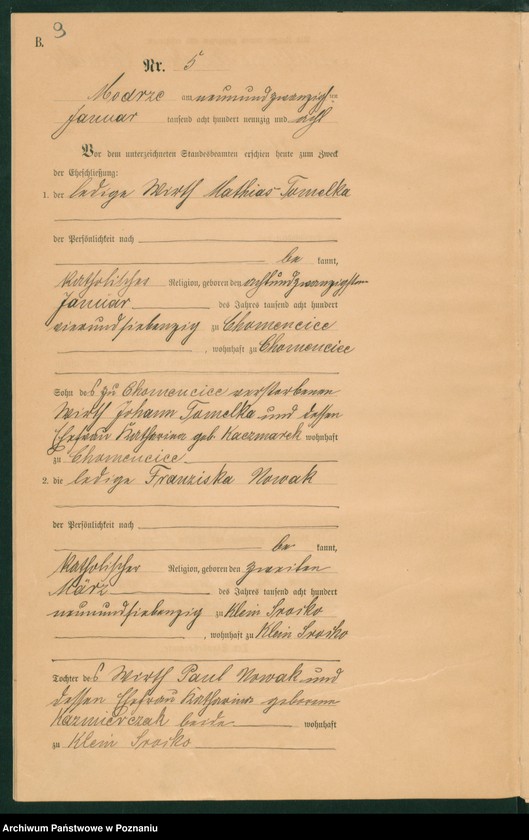 B. 9
Nr. 5
Modrze am neunundzwanzig ten
Januar tausend acht hundert neunzig und acht
Vor dem unterzeichneten Standesbeamten erschien heute zum Zweck
der Eheschließung:
1. der ledige Wirth Mathias Tomelka
der Persönlichkeit nach
be kannt,
katholischer Religion, geboren den achtundzwanzigsten
Januar des Jahres tausend acht hundert
vierundsiebenzig zu Chomencice
, wohnhaft zu Chomencice
Sohn des zu Chomencice verstorbenen
Wirth Johann Tomelka und dessen
Ehefrau Katharina geb. Kaczmarek wohnhaft
zu Chomencice
2. die ledige Franziska Nowak
der Persönlichkeit nach
be kannt,
katholischer Religion, geboren den zweiten
März des Jahres tausend acht hundert
neunundsiebenzig zu Klein Srocko
, wohnhaft zu Klein Srocko
Tochter des Wirth Paul Nowak und
dessen Ehefrau Katharina geborene
Kazmierczak beide wohnhaft
zu Klein Srocko
Archiwum Państwowe w Poznaniu